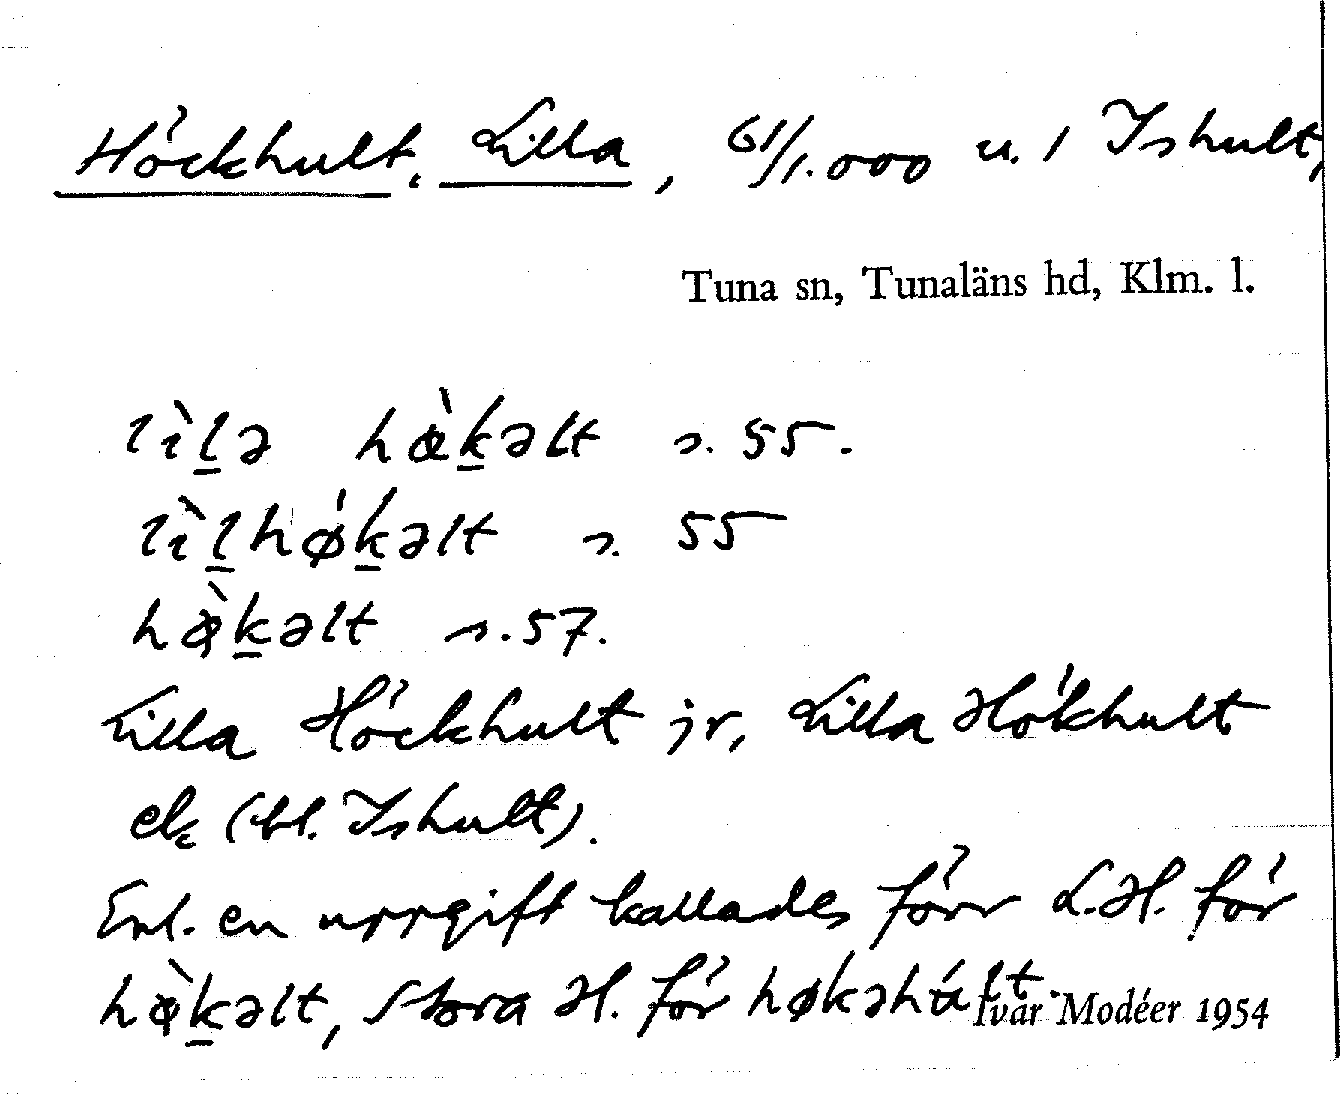 Höckhult, Lilla, G1/1.000 u. / Ishult,
Tuna sn, Tunaläns hd, Klm. l.
lìḻə hœ̀ḵəlt s. 55.
lìḻhǿḵəlt s. 55
hœ̀ḵəlt s. 57.
Lilla Höckhult jr, Lilla Hökhult
ek (bl. Ishult).
Enl. en uppgift kallades förr L.H. för
hœ̀ḵəlt, Stora H. för høkəhúlt.
Ivar Modéer 1954